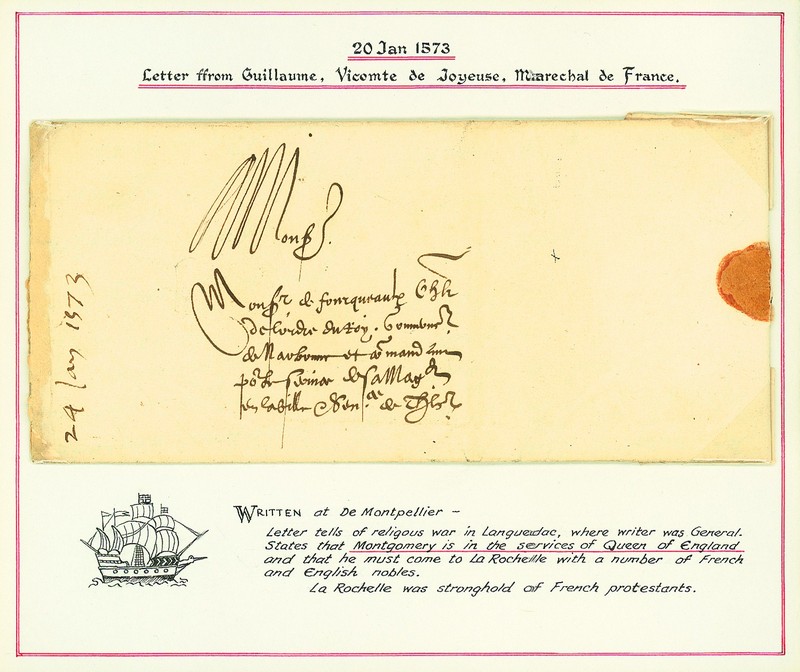 20 Jan 1573
Letter ffrom Guillaume, Vicomte de Joyeuse, Marechal de France.
Monsr.
Monsr de fourqueaulx Chlr
de lordre du Roy. Gouverr
de Narbonne et comand
por le service de sa Magté
en la ville & Senée de Thlze
24 Jan 1573
WRITTEN at De Montpellier –
Letter tells of religous war in Languedac, where writer was General.
States that Montgomery is in the services of Queen of England
and that he must come to La Rochelle with a number of French
and English nobles.
La Rochelle was stronghold of French protestants.